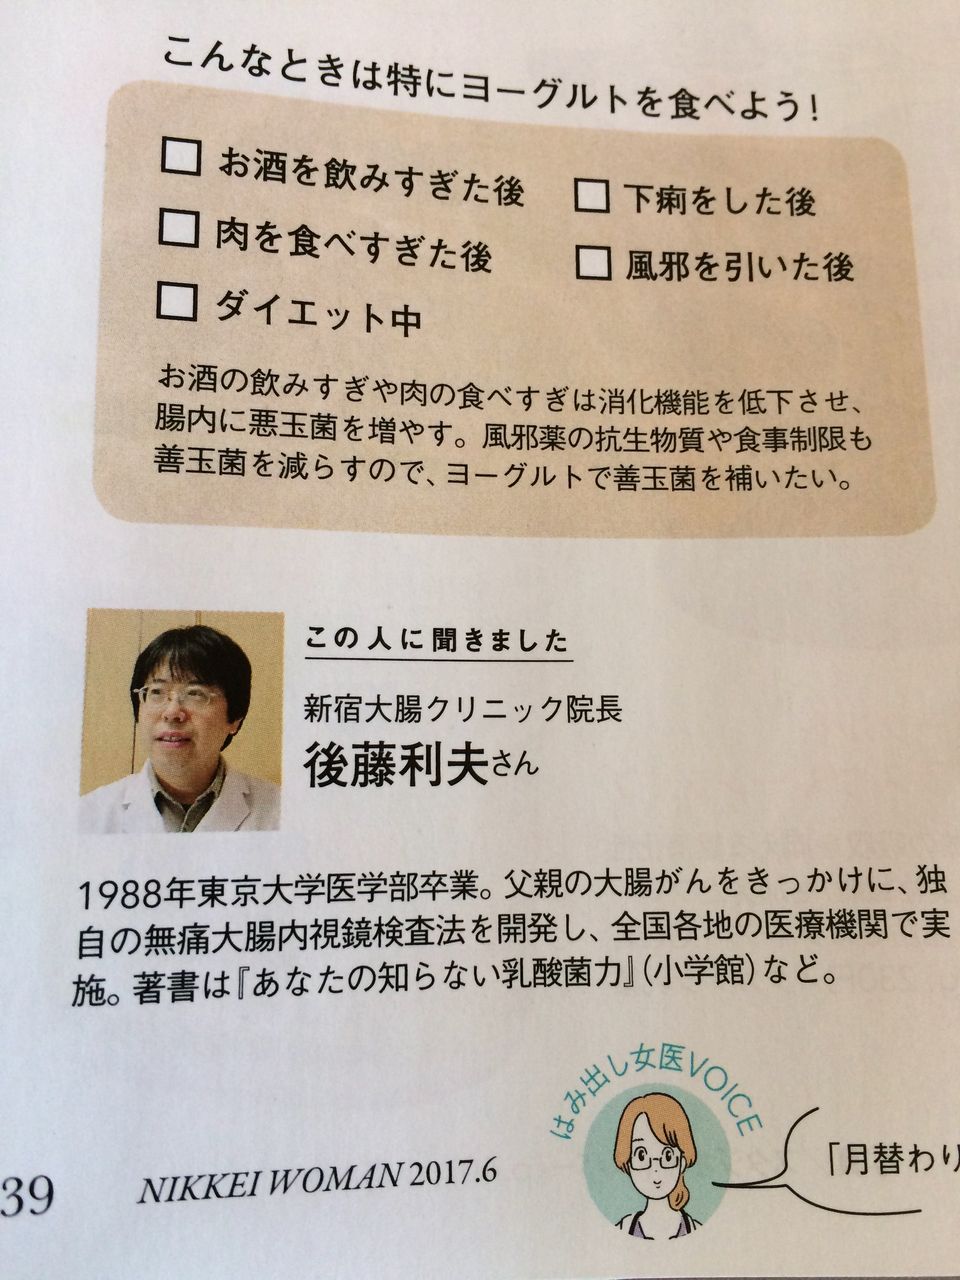 こんなときは特にヨーグルトを食べよう!
□ お酒を飲みすぎた後
□ 肉を食べすぎた後
□ ダイエット中
□ 下痢をした後
□ 風邪を引いた後
お酒の飲みすぎや肉の食べすぎは消化機能を低下させ、
腸内に悪玉菌を増やす。風邪薬の抗生物質や食事制限も
善玉菌を減らすので、ヨーグルトで善玉菌を補いたい。
この人に聞きました
新宿大腸クリニック院長
後藤利夫さん
1988年東京大学医学部卒業。父親の大腸がんをきっかけに、独
自の無痛大腸内視鏡検査法を開発し、全国各地の医療機関で実
施。著書は『あなたの知らない乳酸菌力』(小学館)など。
はみ出し女医VOICE
「月替わり
39 NIKKEI WOMAN 2017.6